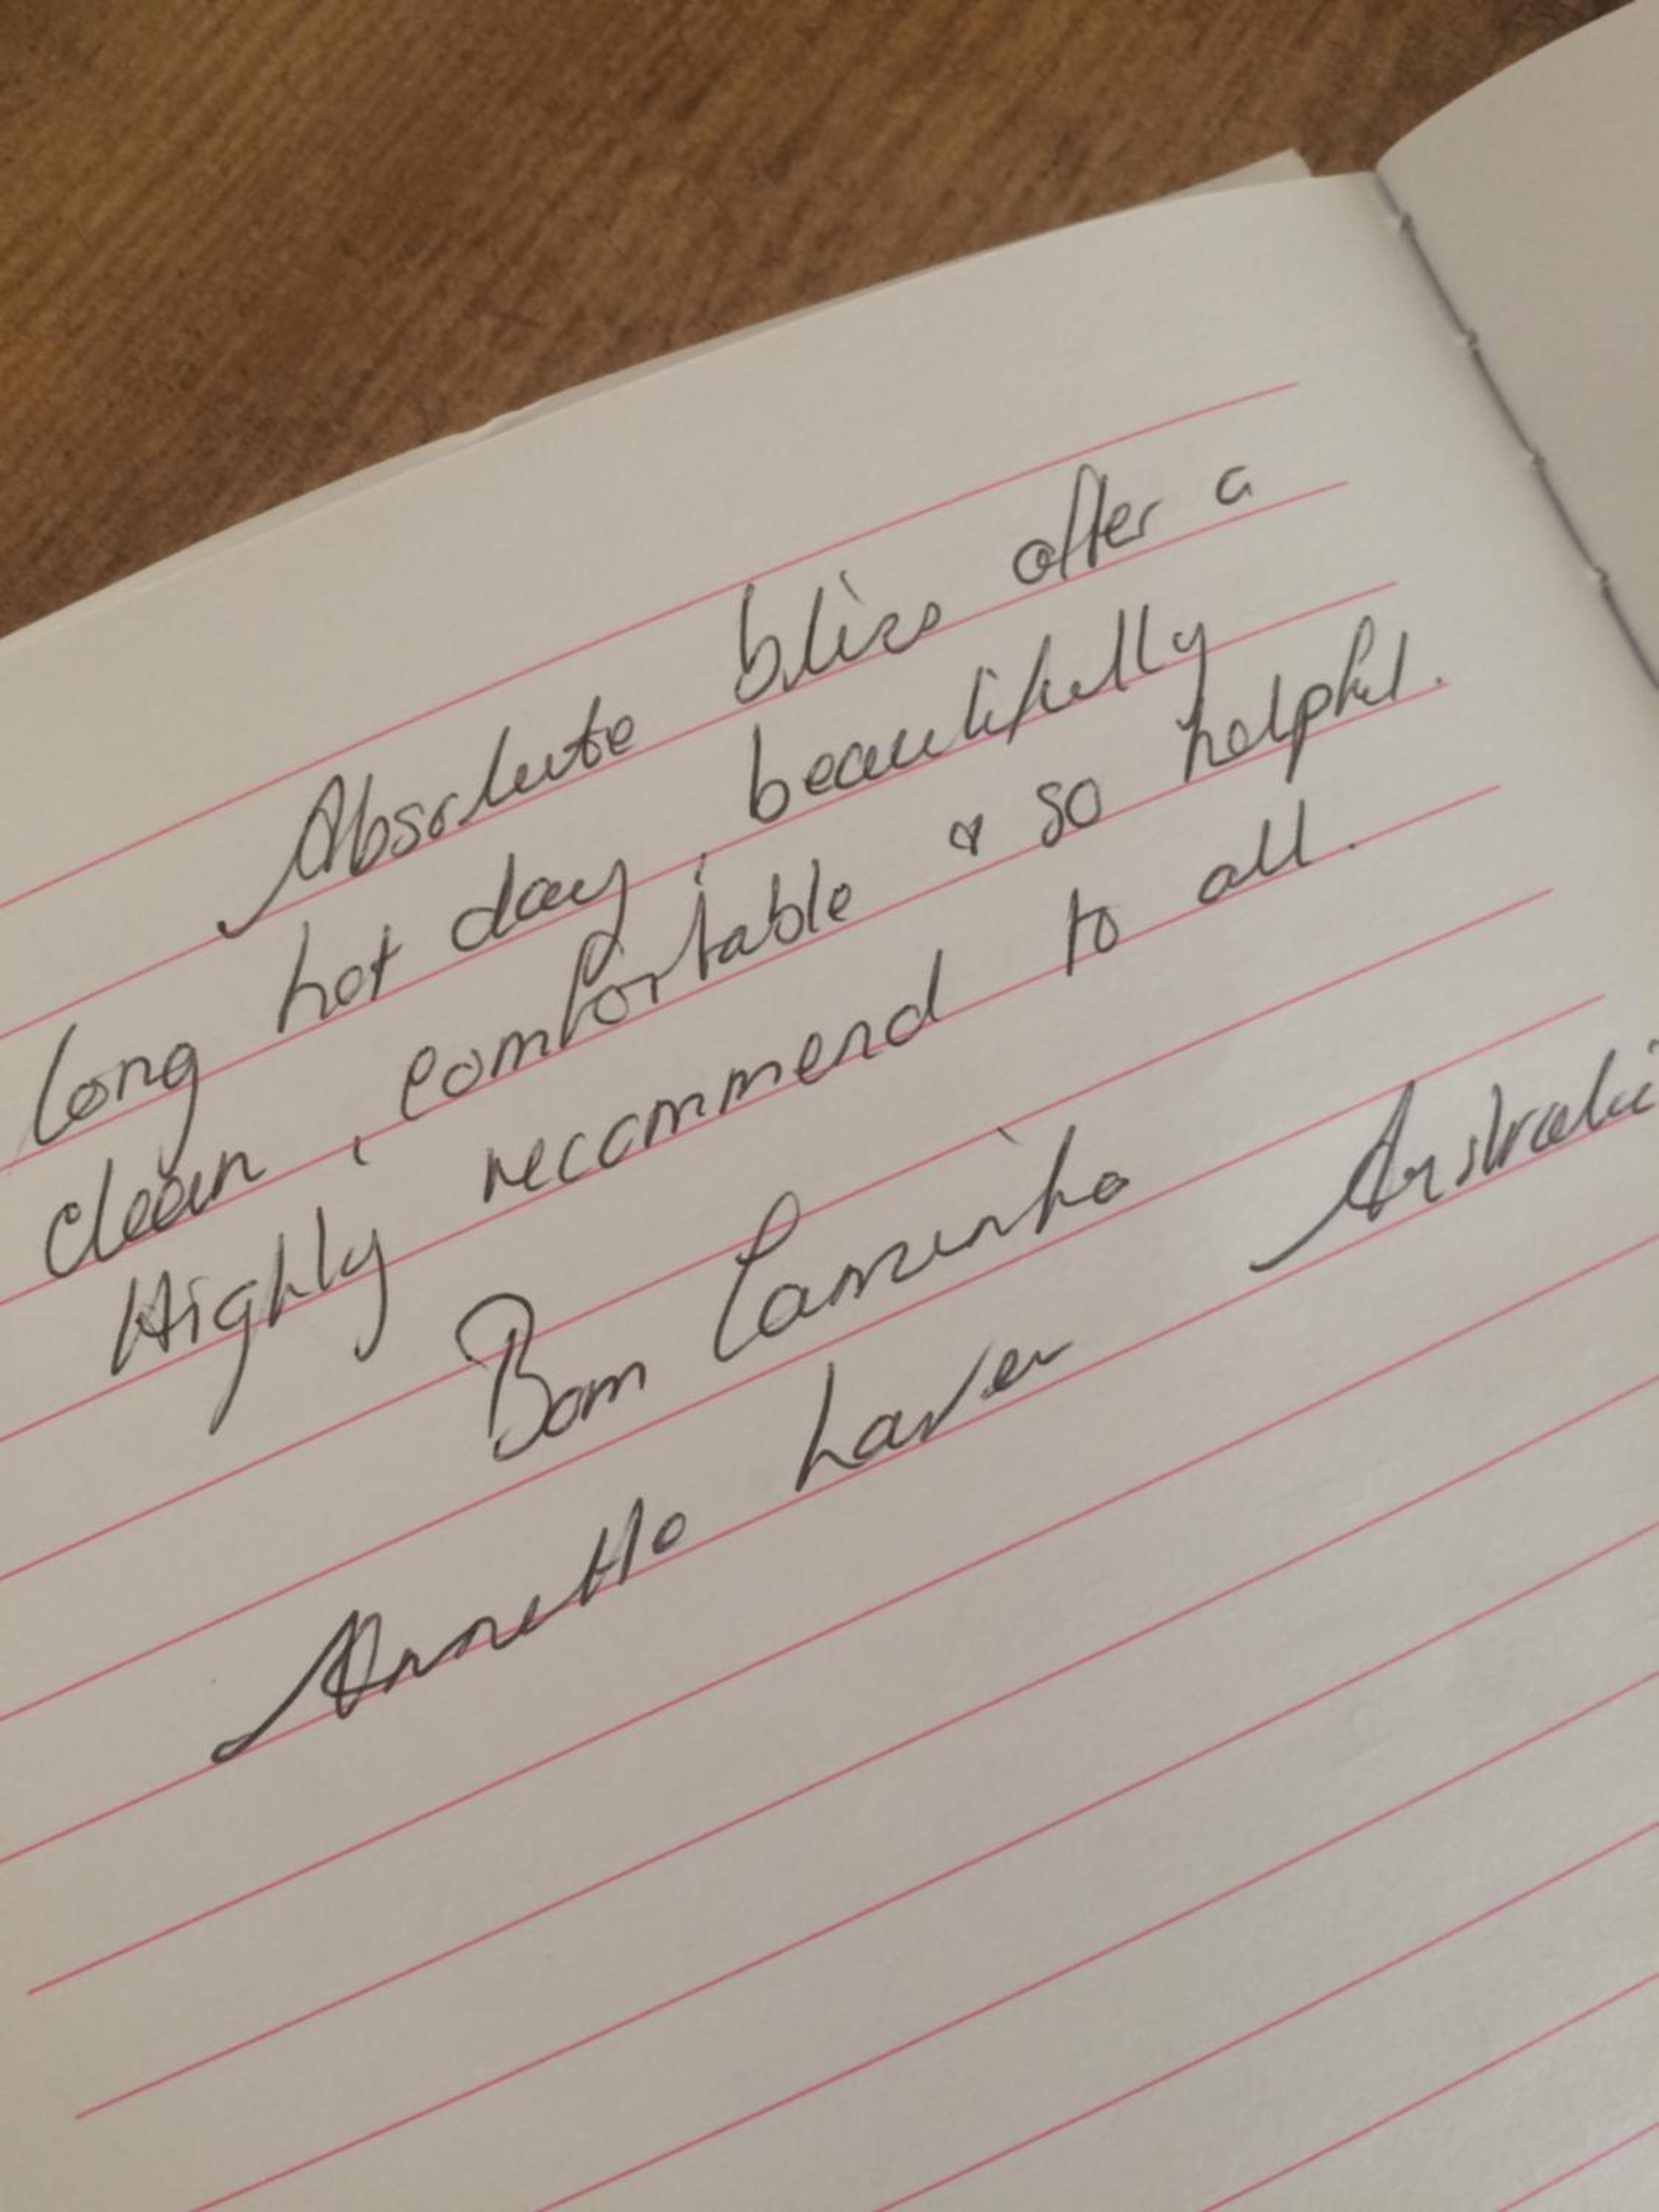 Absolute bliss after a
long hot day, beautifully
clean, comfortable & so helpful.
Highly recommend to all.
Bom Caminho
Annette Laver Australi